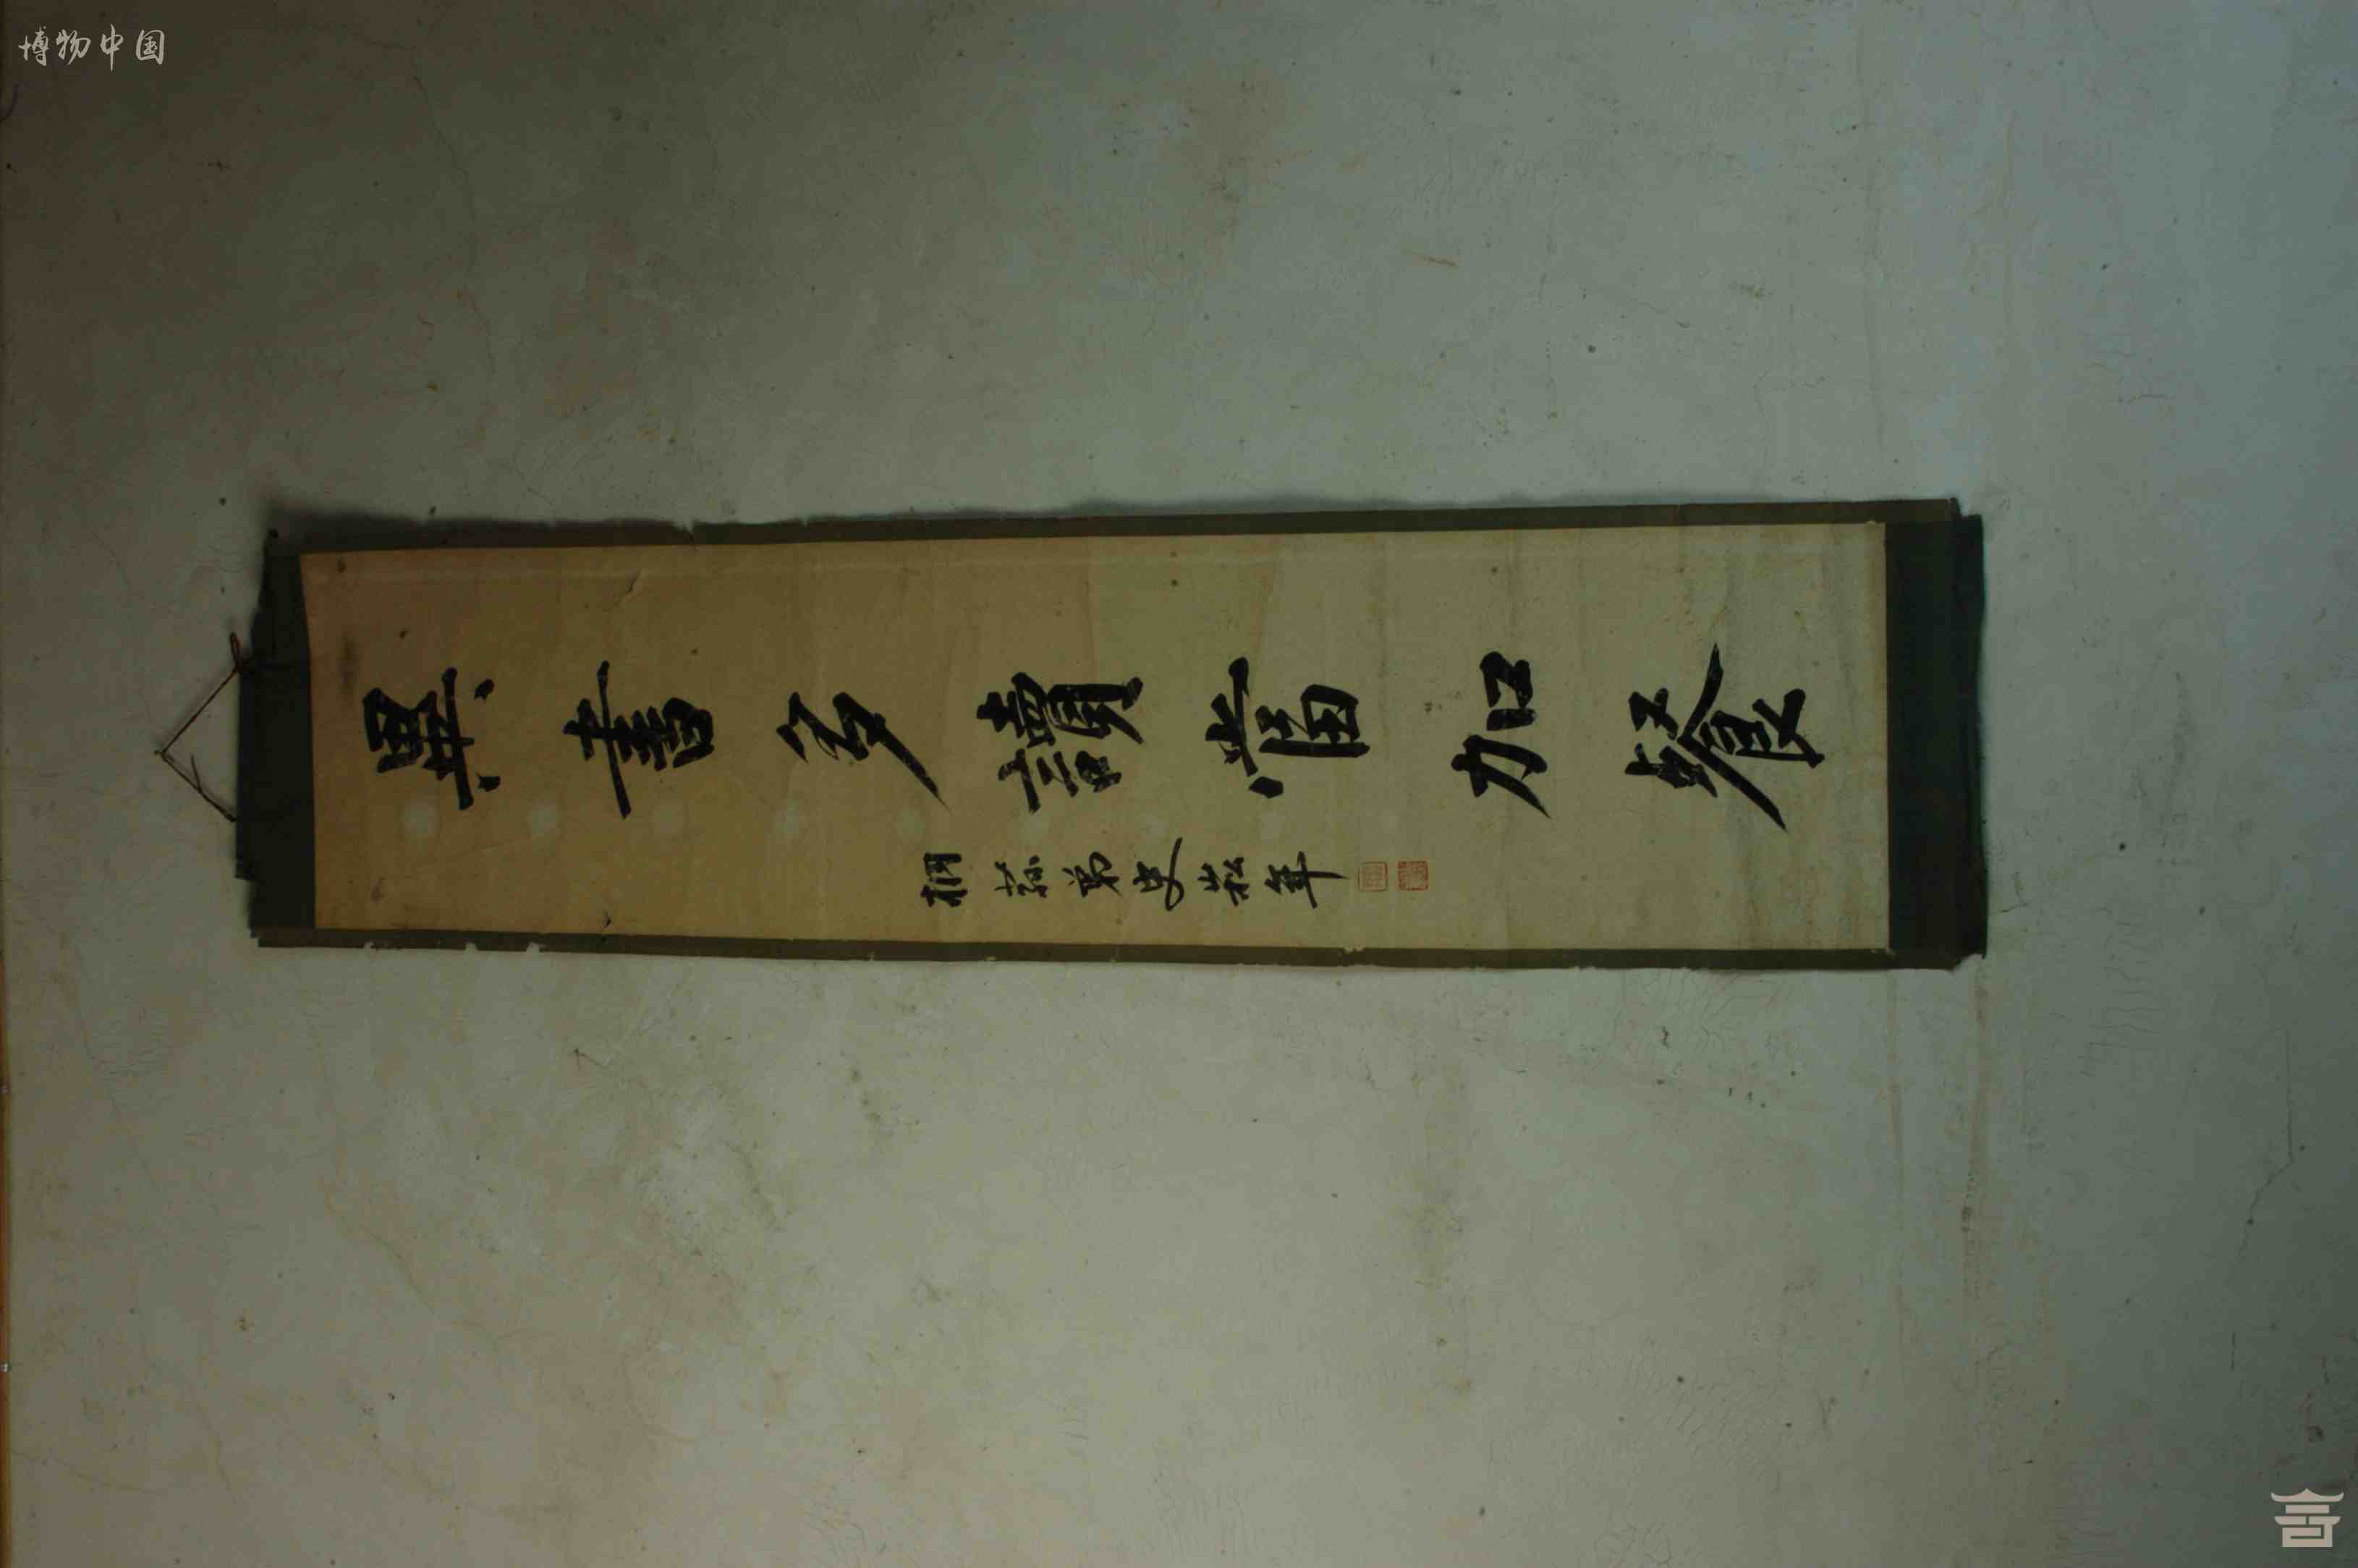 博物中国
異書多讀當加餐
桐蓀弟史崧年